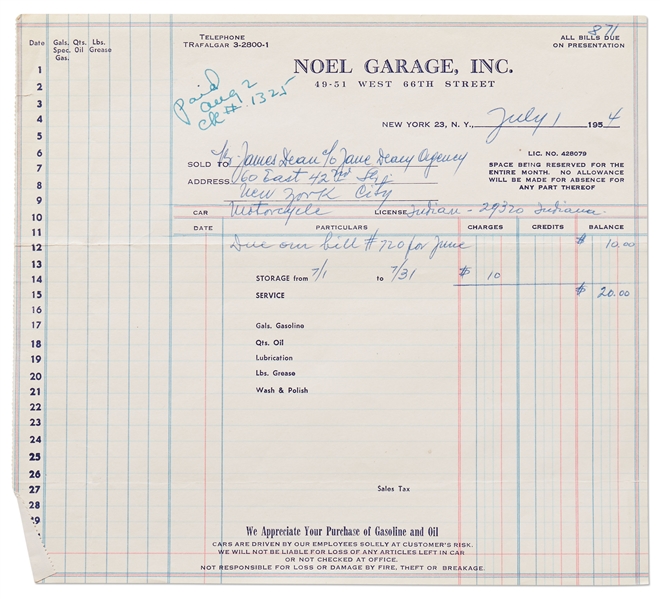 871
TELEPHONE
TRAFALGAR 3-2800-1
ALL BILLS DUE
ON PRESENTATION
NOEL GARAGE, INC.
49-51 WEST 66TH STREET
Paid
Aug 2
CK #. 1325
NEW YORK 23, N. Y., July 1 1954
LIC. NO. 428079
SPACE BEING RESERVED FOR THE
ENTIRE MONTH. NO ALLOWANCE
WILL BE MADE FOR ABSENCE FOR
ANY PART THEREOF
SOLD TO Mr. James Dean c/o Jane Deacy Agency
ADDRESS 60 East 42nd St.
New York City
CAR Motorcycle LICENSE Indian - 29320 Indiana
DATE PARTICULARS CHARGES CREDITS BALANCE
Due our bill # 720 for June $ 10.00
STORAGE from 7/1 to 7/31 $ 10
SERVICE $ 20.00
Gals. Gasoline
Qts. Oil
Lubrication
Lbs. Grease
Wash & Polish
Sales Tax
We Appreciate Your Purchase of Gasoline and Oil
CARS ARE DRIVEN BY OUR EMPLOYEES SOLELY AT CUSTOMER'S RISK.
WE WILL NOT BE LIABLE FOR LOSS OF ANY ARTICLES LEFT IN CAR
OR NOT CHECKED AT OFFICE.
NOT RESPONSIBLE FOR LOSS OR DAMAGE BY FIRE, THEFT OR BREAKAGE.
Date Gals. Qts. Lbs.
Spec. Oil Grease
Gas.
1
2
3
4
5
6
7
8
9
10
11
12
13
14
15
16
17
18
19
20
21
22
23
24
25
26
27
28